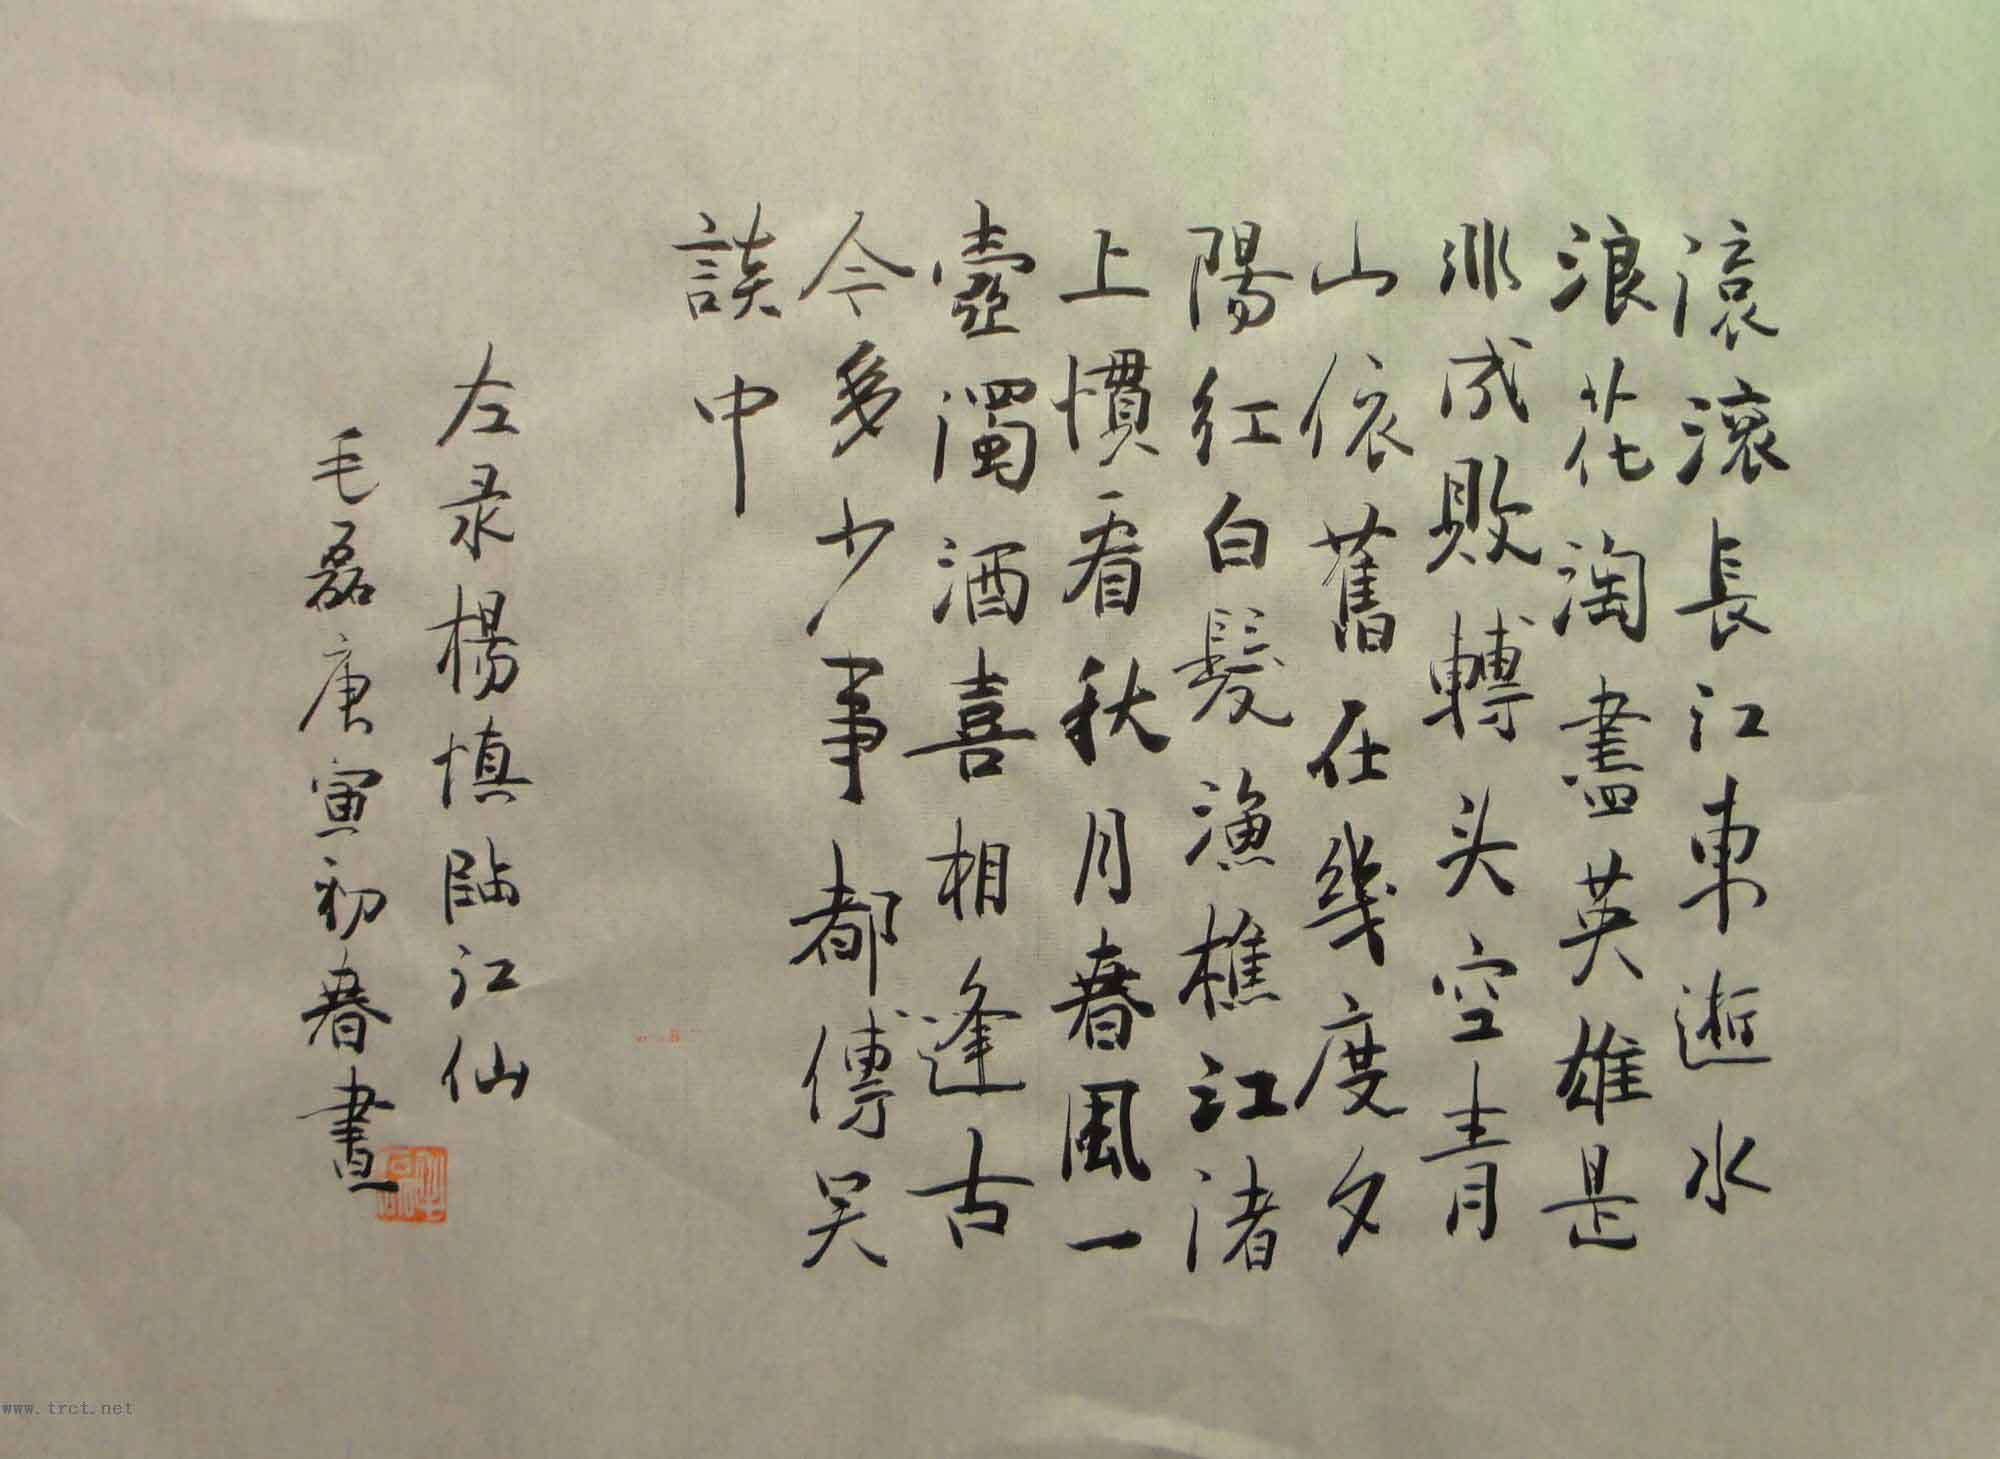 滚滚長江東逝水
浪花淘盡英雄是
非成敗轉头空青
山依舊在幾度夕
陽红白髮漁樵江渚
上慣看秋月春風一
壺濁酒喜相逢古
今多少事都傅吴
談中
左录楊慎臨江仙
毛磊庚寅初春書
www.trct.net